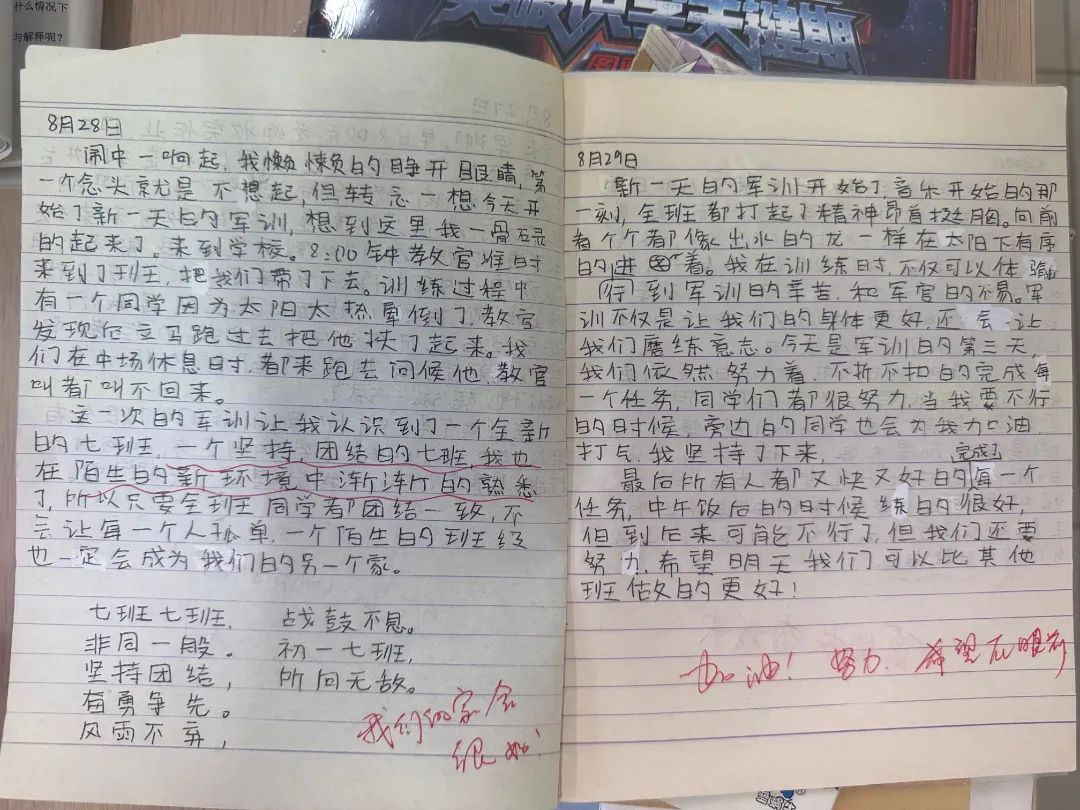 什么情况下
与解释呢？
8月28日
闹中一响起，我懒懒的睁开眼睛，第
一个念头就是不想起，但转念一想今天开
始了新一天的军训，想到这里我一骨碌
的起来了。来到学校。8:00钟教官准时
来到了班，把我们带了下去。训练过程中
有一个同学因为太阳太热晕倒了，教官
发现后立马跑过去把他扶了起来。我
们在中场休息时，都来跑去问候他，教官
叫都叫不回来。
这一次的军训让我认识到了一个全新
的七班，一个坚持，团结的七班，我也
在陌生的新环境中渐渐的熟悉
了，所以只要全班同学都团结一致，不
会让每一个人孤单，一个陌生的班级
也一定会成为我们的另一个家。
七班七班， 战鼓不息。
非同一般。 初一七班，
坚持团结， 所向无敌。
奋勇争先。
风雨不弃，
我们的家会
很好！
8月29日
新一天的军训开始了，音乐开始的那
一刻，全班都打起了精神昂首挺胸。向前
看个个都像出水的龙一样在太阳下有序
的进着。我在训练时，不仅可以体
到军训的辛苦，和军官的不易。军
训不仅是让我们的身体更好，还会让
我们磨练意志。今天是军训的第三天，
我们依然努力着，不折不扣的完成每
一个任务，同学们都很努力，当我要不行
的时候，旁边的同学也会为我加油
打气，我坚持了下来，
最后所有人都又快又好的完成了每一个
任务，中午饭后的时候练的很好，
但到后来可能不行了，但我们还要
努力，希望明天我们可以比其他
班做的更好！
加油！努力，希望在眼前